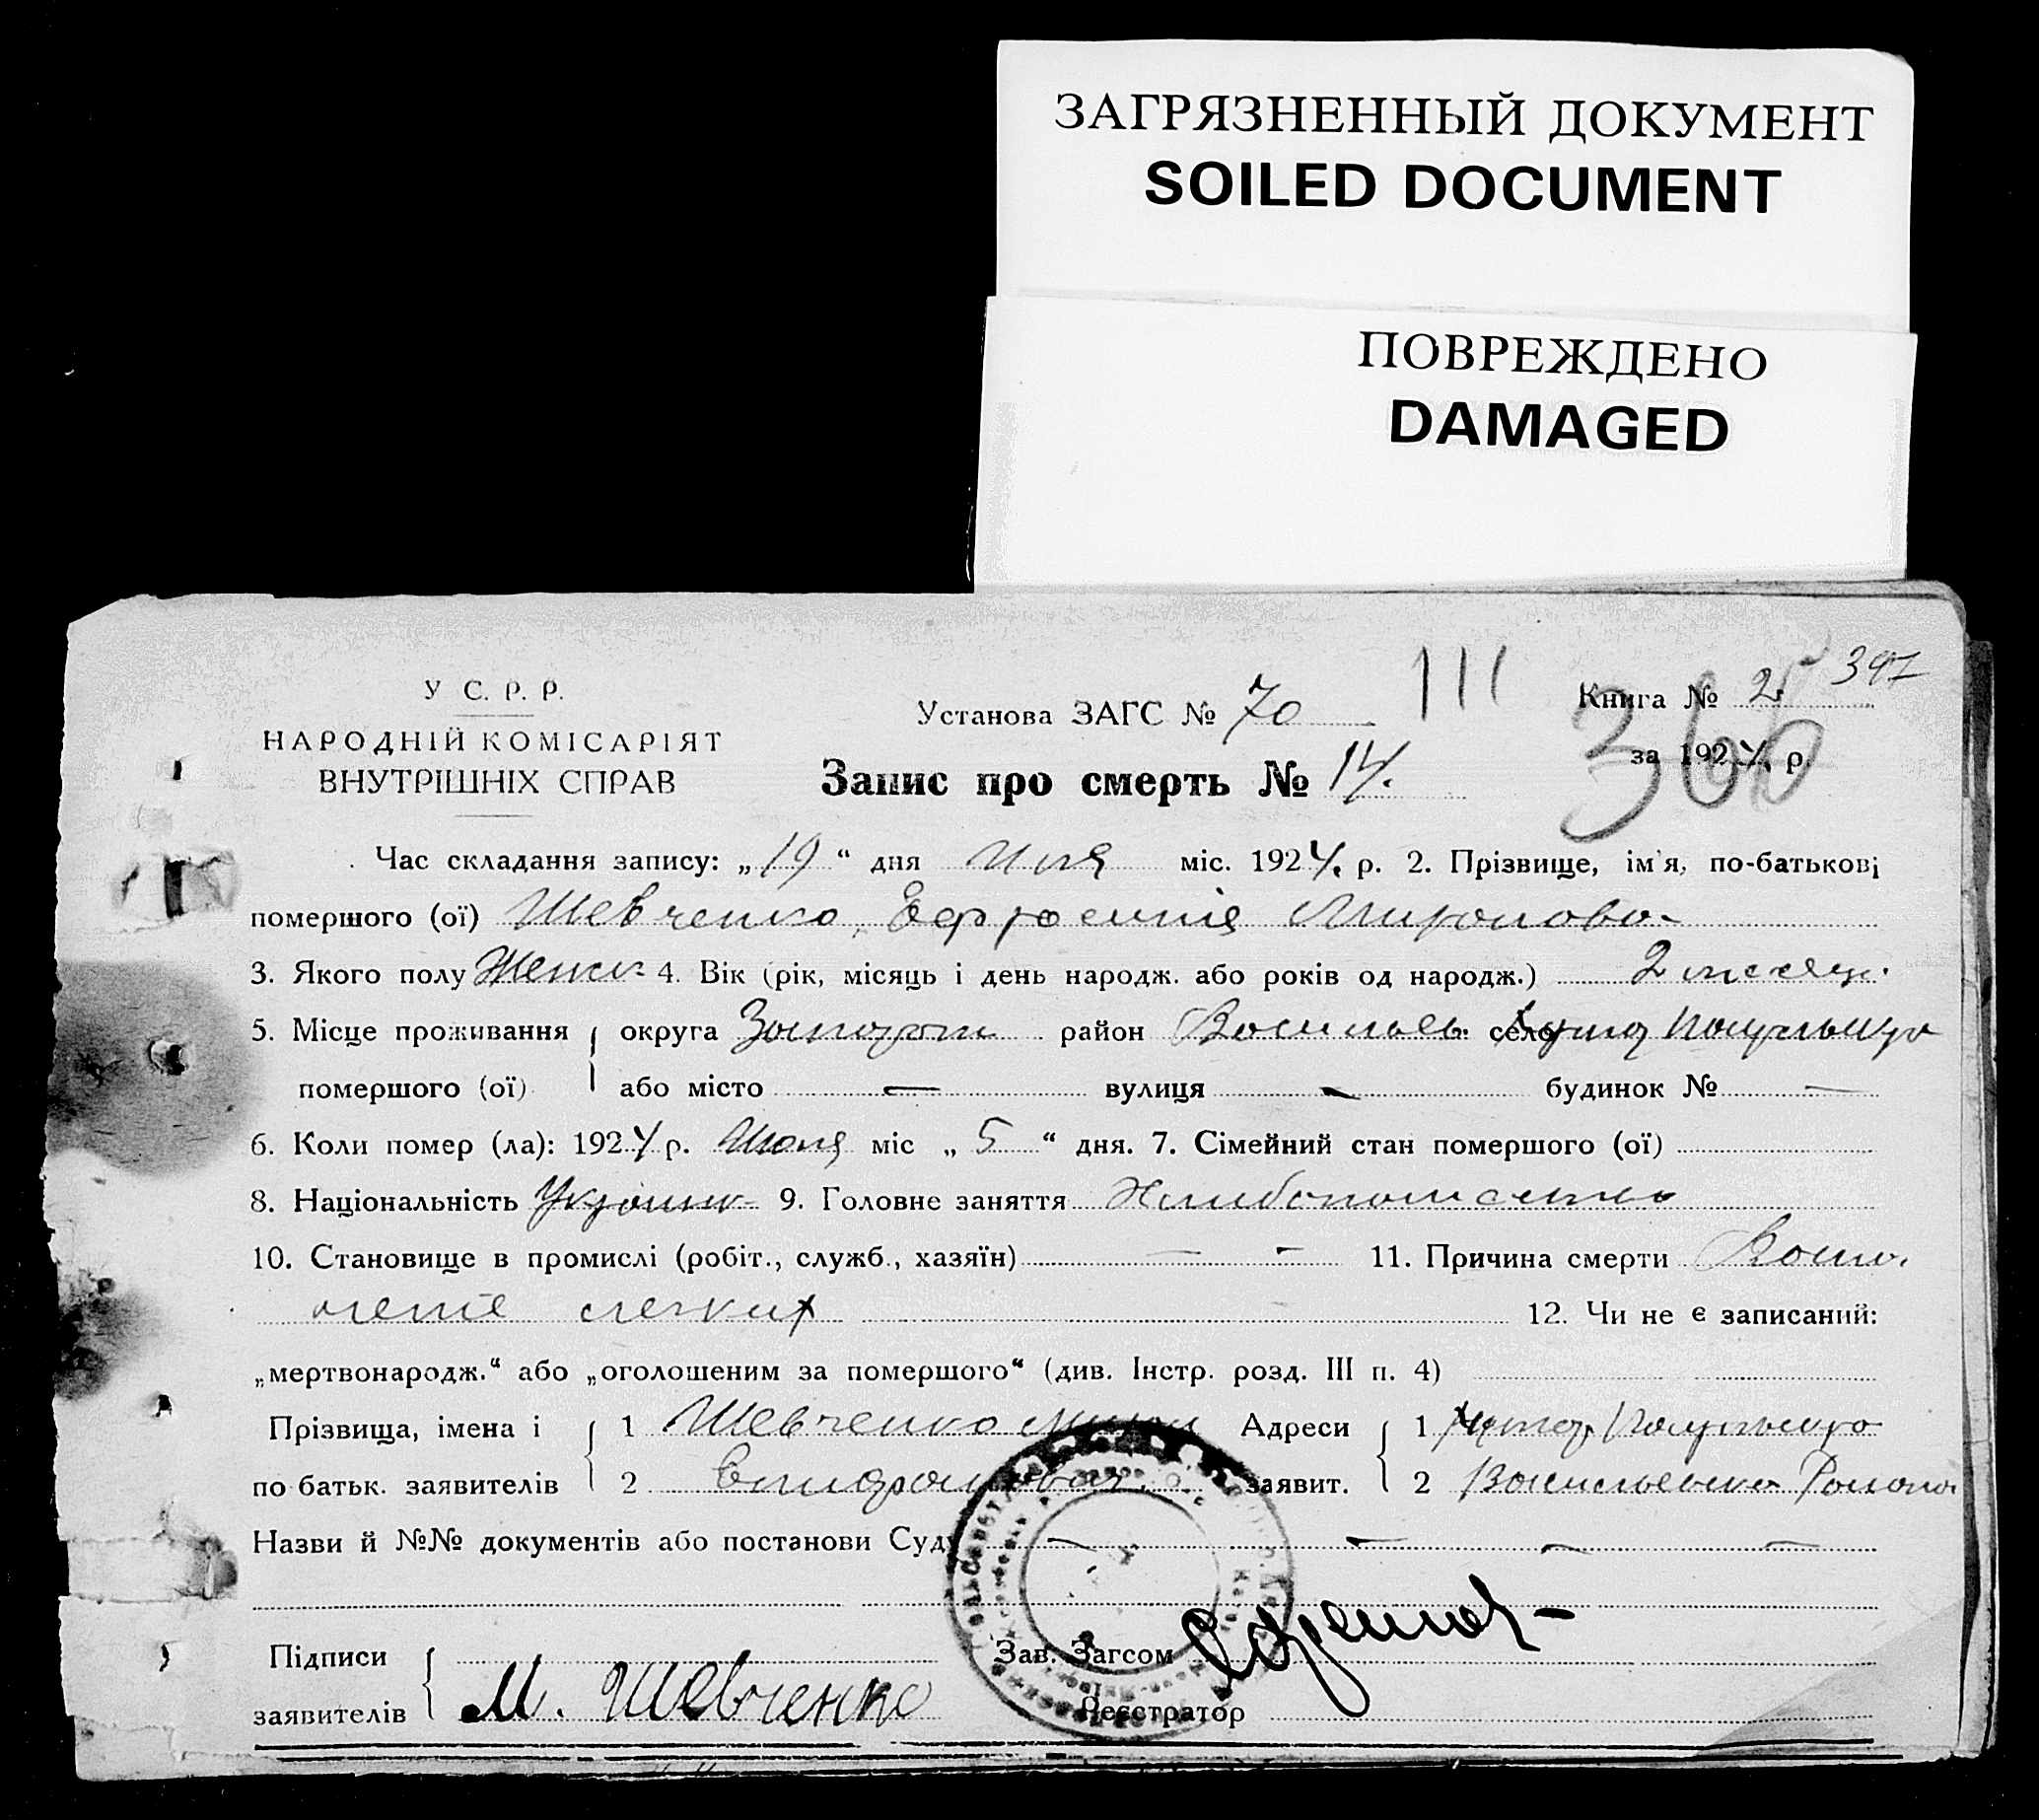 ЗАГРЯЗНЕННЫЙ ДОКУМЕНТ
SOILED DOCUMENT
ПОВРЕЖДЕНО
DAMAGED
397
111
366
У С. Р. Р.
НАРОДНІЙ КОМІСАРІЯТ
ВНУТРІШНІХ СПРАВ
Установа ЗАГС № 70
Книга № 2
за 1924 р.
Запис про смерть № 14.
Час складання запису: „19“ дня міс. 1924. р. 2. Прізвище, ім'я, по-батькові
помершого (ої) Шевченко, Ефросинія Миронова
3. Якого полу Женск 4. Вік (рік, місяць і день народж. або років од народж.) 2 месяца
5. Місце проживання округа Запорож район Васильев село Хутор
помершого (ої) або місто — вулиця — будинок № —
6. Коли помер (ла): 1924 р. Июля міс „5“ дня. 7. Сімейний стан помершого (ої)
8. Національність Украин 9. Головне заняття
10. Становище в промислі (робіт., служб., хазяїн) — - 11. Причина смерти Воспа-
ление легких 12. Чи не є записаний:
„мертвонародж.“ або „оголошеним за помершого“ (див. Інстр. розд. III п. 4)
Прізвища, імена і 1 Шевченко Мирон Адреси 1 Хутор
по батьк. заявителів 2 заявит. 2 Васильевка
Назви й №№ документів або постанови Суду — — — —
Підписи Зав. Загсом
заявителів М. Шевченко Реєстратор